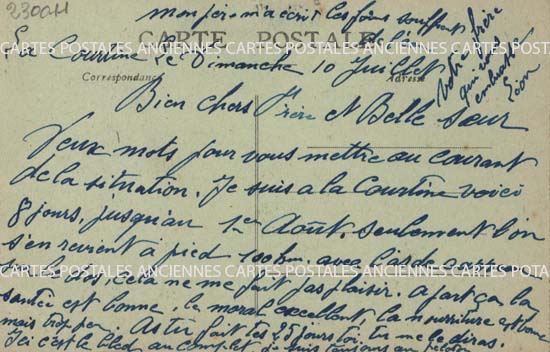 2300H
mon père m'a écrit les foins souffrent
de l'eau
CARTE POSTALE
La Courtine Le Dimanche 10 Juillet
Correspondance Adresse
votre frère
qui vous
embrasse
Léon
Bien chers frère et Belle Sœur
Deux mots pour vous mettre au courant
de la situation. Je suis a la Courtine voici
8 jours, jusqu'au 1er Août. seulement l'on
s'en revient à pied 100 km. avec l'as de
CARTES POSTALES ANCIENNES CARTES POSTALES ANCIENNES CARTES POSTALES ANCIENNES
cela ne me fait pas plaisir. a part ça la
santée est bonne, le moral excellent, la nourriture est bonne
mais trop peu. As tu fait tes 25 jours toi. Tu me le diras.
Ici c'est le bled au complet, je suis toujours au